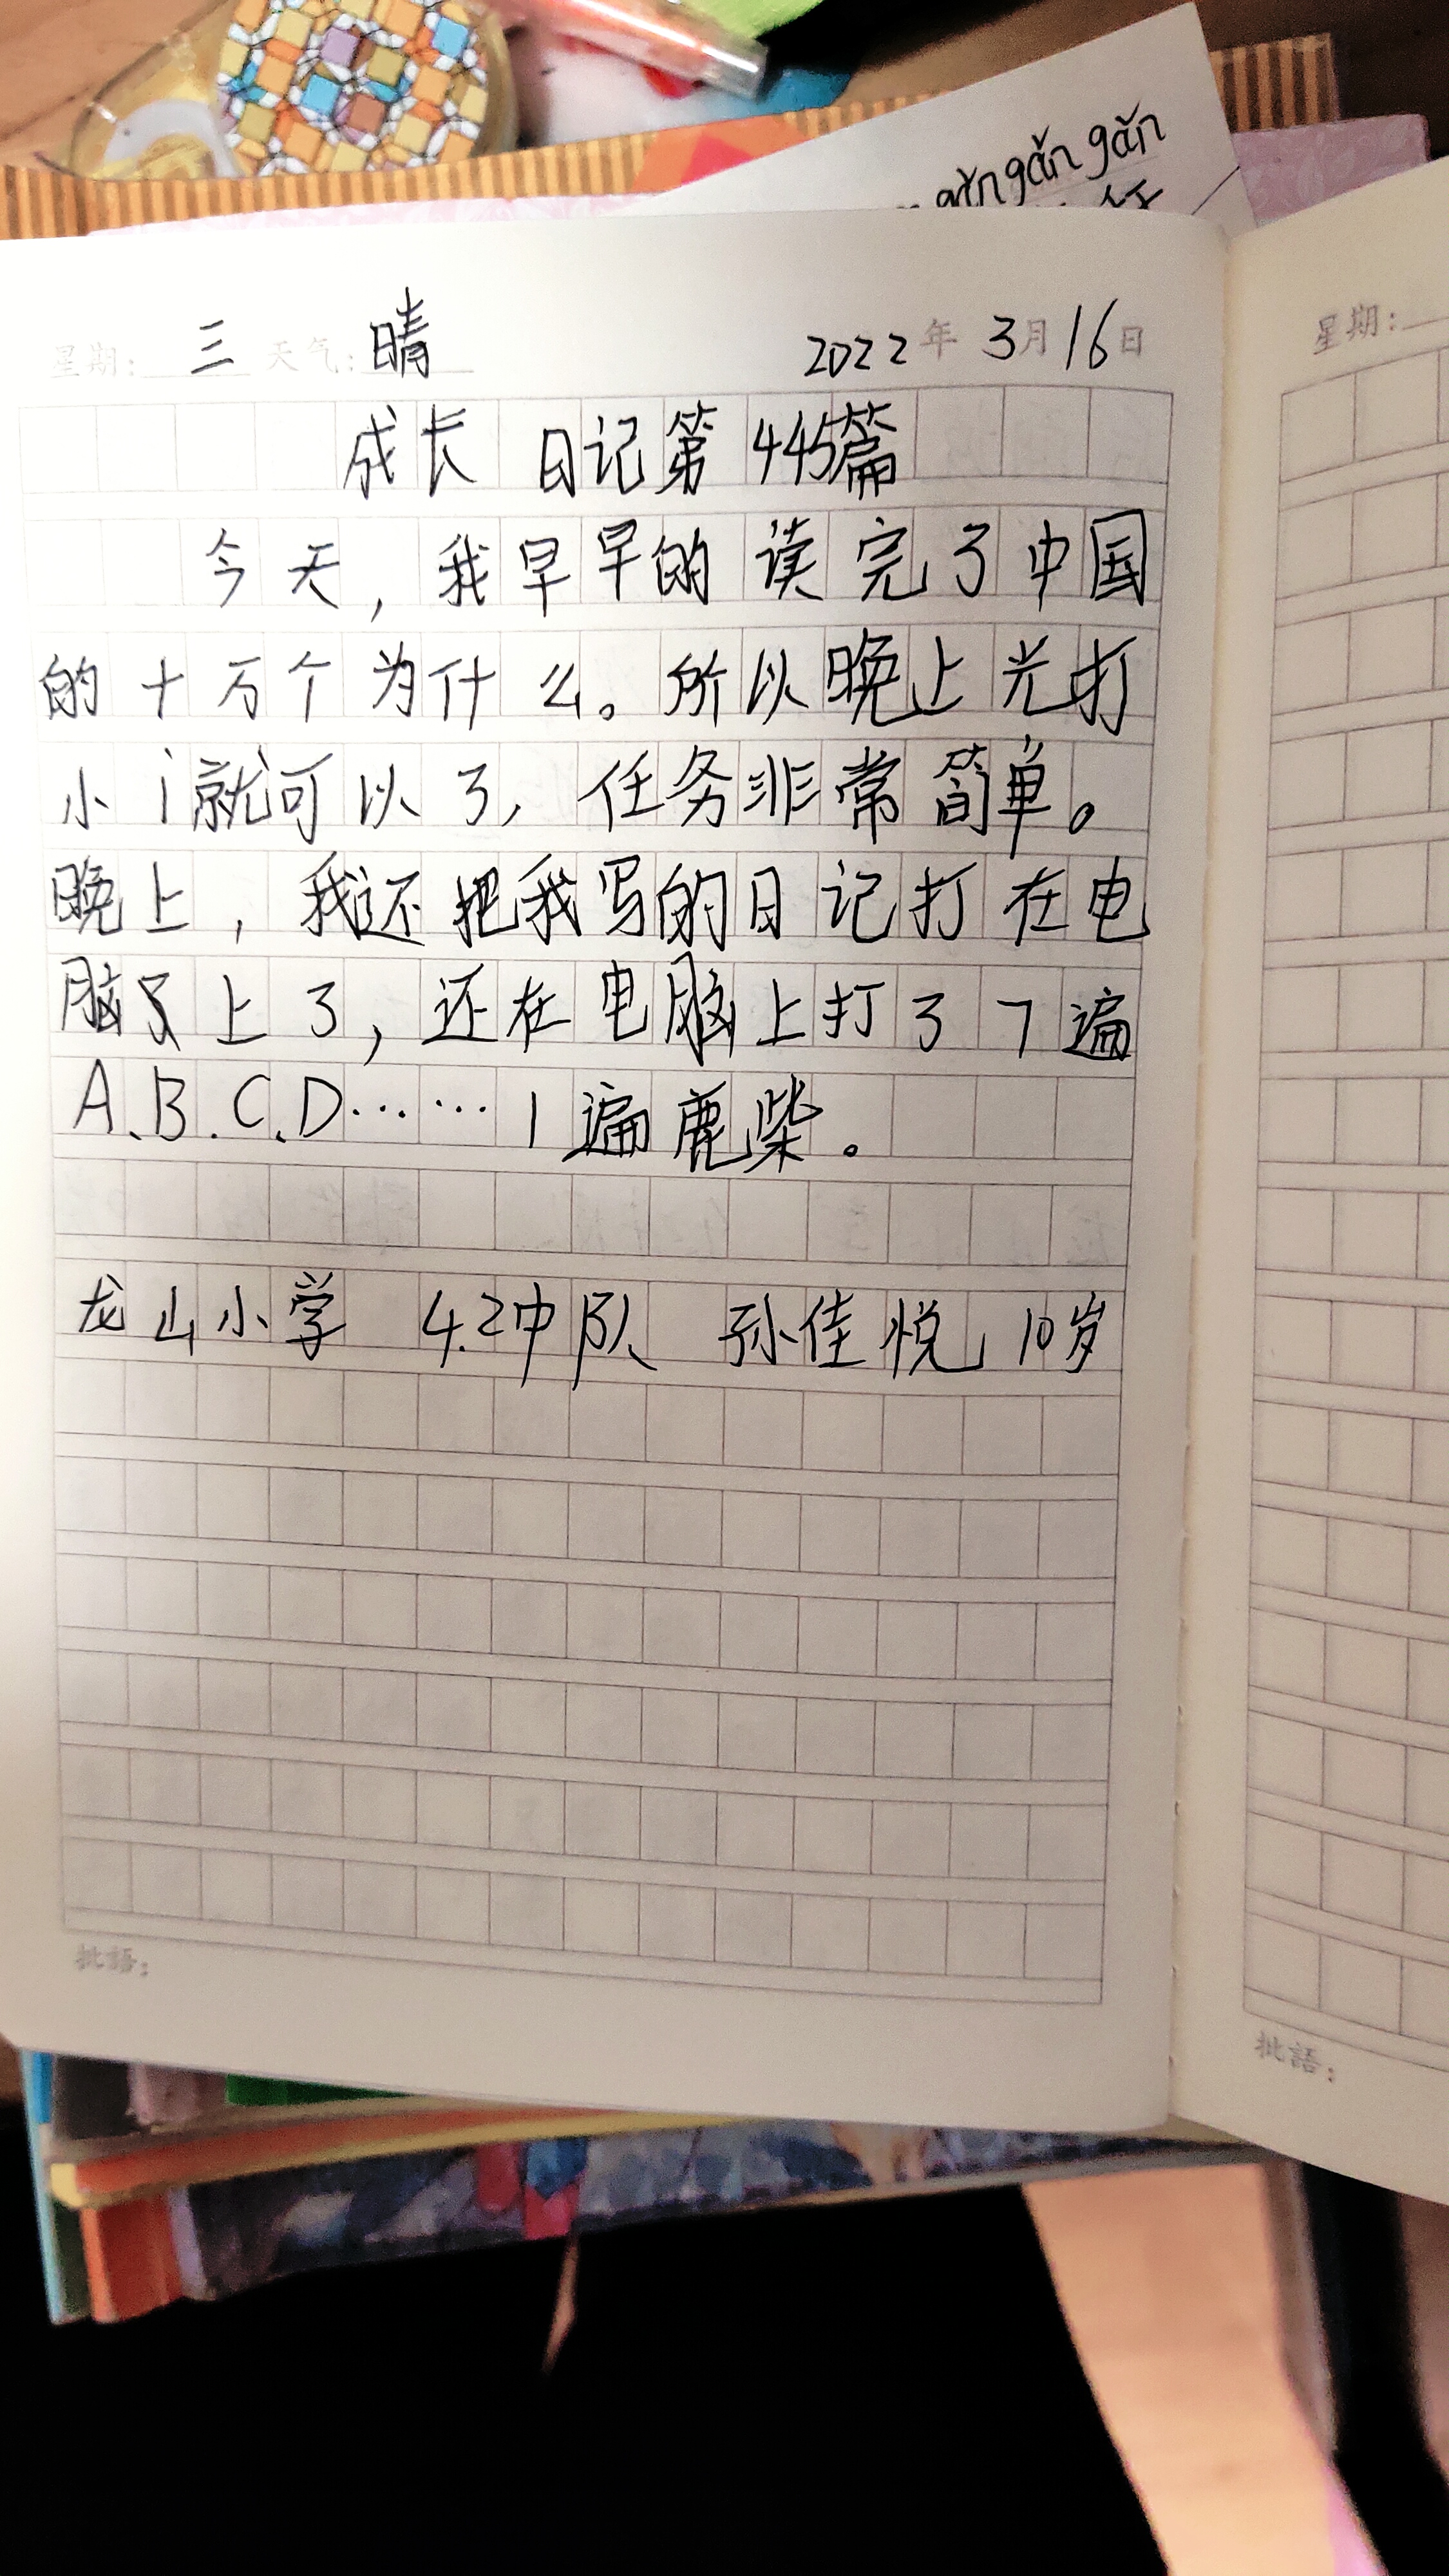 gǎn gǎn gǎn
星期: 三 天气: 晴 2022年 3月16日
成长日记第445篇
今天,我早早的读完了中国
的十万个为什么。所以晚上光打
小i就可以了,任务非常简单。
晚上,我还把我写的日记打在电
脑上了,还在电脑上打了7遍
A、B、C、D……1遍鹿柴。
龙山小学 4.2中队 孙佳悦 10岁
批語:
星期:
批語: